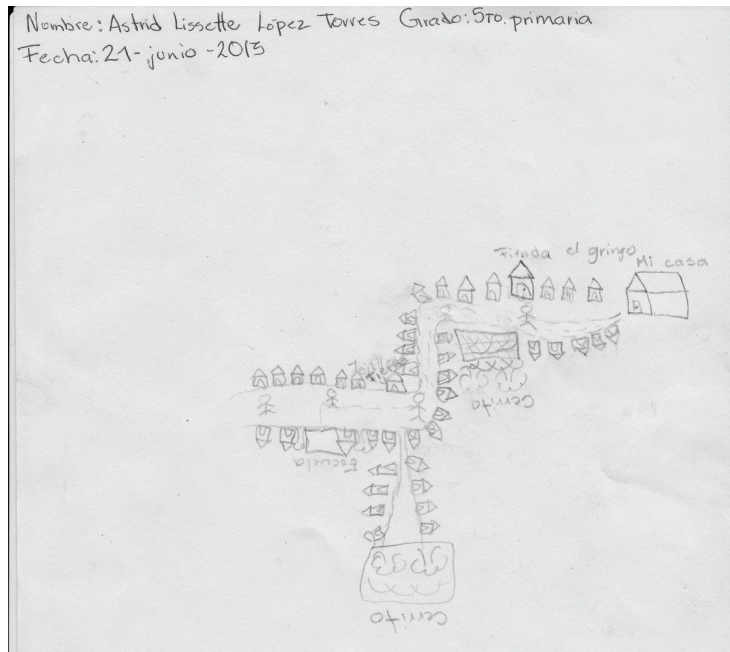 Nombre: Astrid Lissette López Torres Grado: 5TO. primaria
Fecha: 21-junio-2013
Tienda el gringo
Mi casa
Cerrito
Escuela
Cerrito